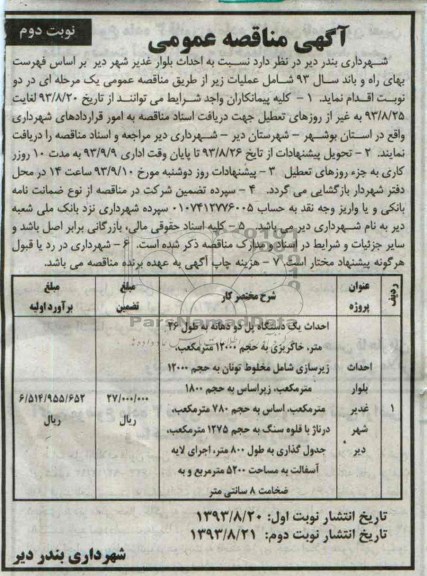 نوبت دوم
آگهی مناقصه عمومی
شهرداری بندر دیر در نظر دارد نسبت به احداث بلوار غدیر شهر دیر بر اساس فهرست
بهای راه و باند سال ۹۳ شامل عملیات زیر از طریق مناقصه عمومی یک مرحله ای در دو
نوبت اقدام نماید. ۱ - کلیه پیمانکاران واجد شرایط می توانند از تاریخ ۹۳/۸/۲۰ لغایت
۹۳/۸/۲۵ به غیر از روزهای تعطیل جهت دریافت اسناد مناقصه به امور قراردادهای شهرداری
واقع در استان بوشهر - شهرستان دیر - شهرداری دیر مراجعه و اسناد مناقصه را دریافت
نمایند. ۲ - تحویل پیشنهادات از تایخ ۹۳/۸/۲۶ تا پایان وقت اداری ۹۳/۹/۹ به مدت ۱۰ روزر
کاری به جزه روزهای تعطیل ۳ - پیشنهادات روز دوشنبه مورخ ۹۳/۹/۱۰ ساعت ۱۴ در محل
دفتر شهردار بازگشایی می گردد. ۴ - سپرده تضمین شرکت در مناقصه از نوع ضمانت نامه
بانکی و یا واریز وجه نقد به حساب ۰۱۰۷۴۱۲۷۷۶۰۰۵ سپرده شهرداری نزد بانک ملی شعبه
دیر به نام شهرداری دیر می باشد. ۵ - کلیه اسناد حقوقی مالی، بازرگانی برابر اصل باشد و
سایر جزئیات و شرایط در اسناد و مدارک مناقصه ذکر شده است. ۶ - شهرداری در رد یا قبول
هرگونه پیشنهاد مختار است. ۷ - هزینه چاپ آگهی به عهده برنده مناقصه می باشد.
ردیف عنوان پروژه شرح مختصر کار مبلغ تضمین مبلغ برآورد اولیه
احداث یک دستگاه پل دو دهانه به طول ۲۶
متر، خاکریزی به حجم ۱۲۰۰۰ مترمکعب،
احداث زیرسازی شامل مخلوط تونان به حجم ۱۲۰۰۰
بلوار مترمکعب، زیراساس به حجم ۱۸۰۰
۱ غدیر مترمکعب، اساس به حجم ۷۸۰ مترمکعب، ۲۷/۰۰۰/۰۰۰ ۶/۵۱۴/۹۵۵/۶۵۲
شهر درناژ با قلوه سنگ به حجم ۱۲۷۵ مترمکعب، ریال ریال
دیر جدول گذاری به طول ۸۰۰ متر، اجرای لایه
آسفالت به مساحت ۵۲۰۰ مترمربع و به
ضخامت ۸ سانتی متر
تاریخ انتشار نوبت اول: ۱۳۹۳/۸/۲۰
تاریخ انتشار نوبت دوم: ۱۳۹۳/۸/۲۱
شهرداری بندر دیر